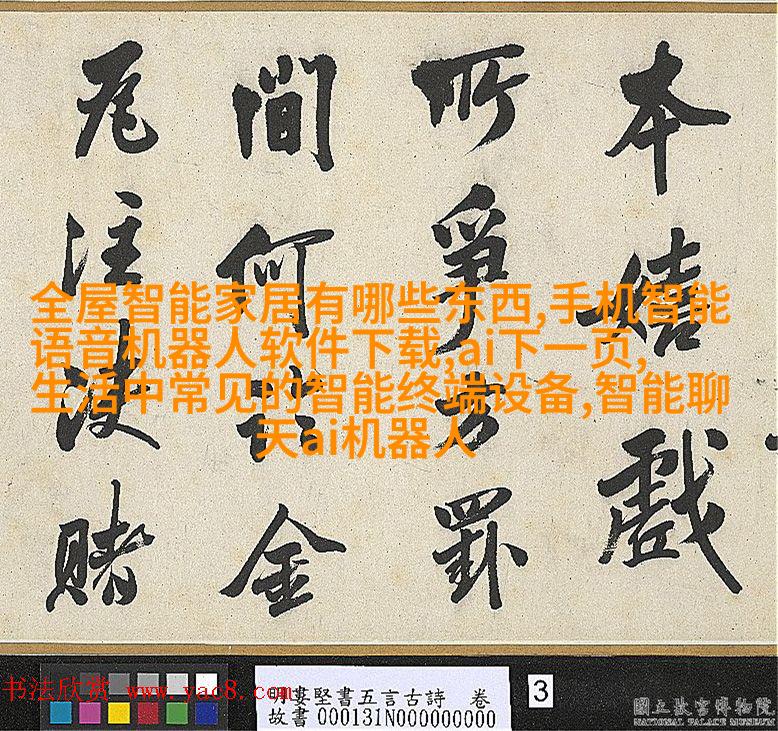 本嬉戲
所爭方罫
間何金
瓦注決賭
全屋智能家居有哪些东西,手机智能
语音机器人软件下载,ai下一页,
生活中常见的智能终端设备,智能聊
天ai机器人
书法欣赏 www.yac8.com
明婁堅書五言古詩 卷
故書000131N000000000
3
國立故宮博物院
NATIONAL PALACE MUSEUM